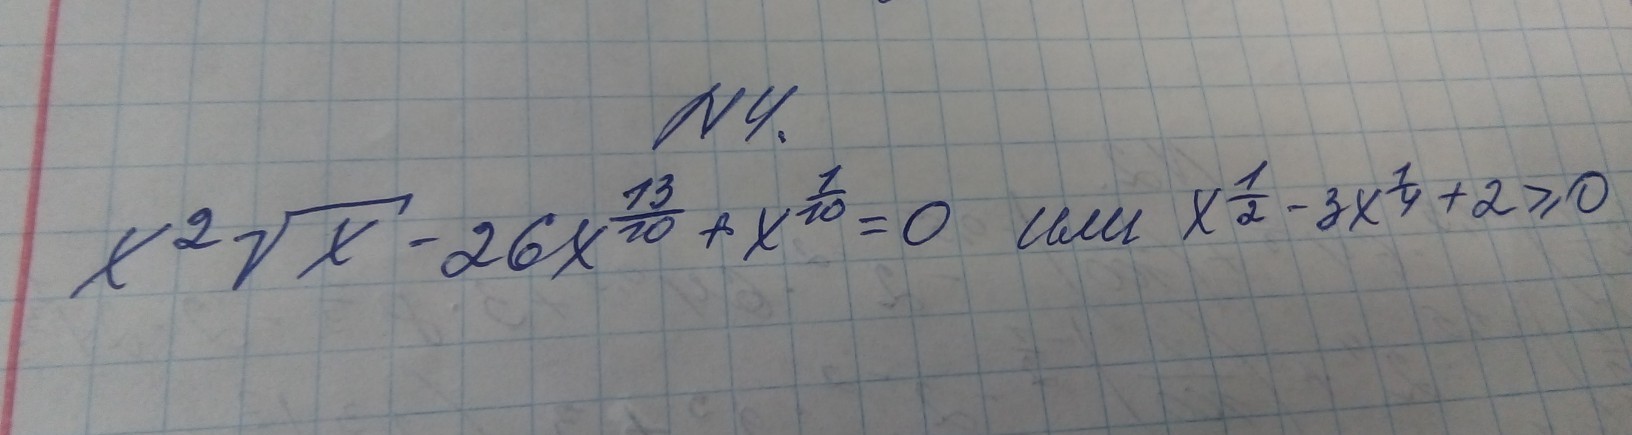 N4.
x²√x - 26x^(13/10) + x^(1/10) = 0 или x^(1/2) - 3x^(1/4) + 2 ⩾ 0